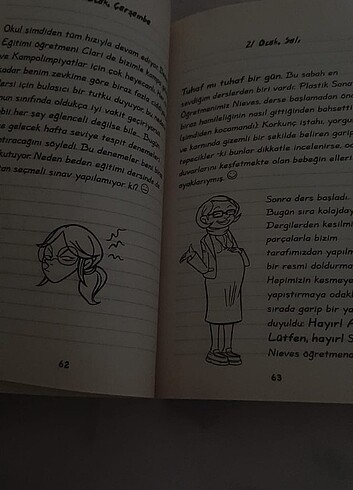 Ocak, Çarşamba
Okul şimdiden tüm hızıyla devam ediyor.
Eğitimi öğretmeni Clari de bizimle
ve Kampolimpiyatlar için çok heyecanlı
kadar benim zevkime göre biraz fazla ciddi
dersi için bulaşıcı bir tutku duyuyor, bu
nun sınıfında oldukça iyi vakit geçiriyoruz
bii her şey eğlenceli değilse bile. Bugün
e gelecek hafta seviye tespit denemeleri
tıracağını söyledi. Bu denemeler beni biraz
kutuyor. Neden beden eğitimi dersinde de
tan seçmeli sınav yapılamıyor ki?
62
21 Ocak, Salı
Tuhaf mı tuhaf bir gün. Bu sabah en
sevdiğim derslerden biri vardı: Plastik Sana
Öğretmenimiz Nieves, derse başlamadan önce
biraz hamileliğinin nasıl gittiğinden bahsetti
(şimdiden kocamandı). Korkunç iştahı, yorgun
ve karnında gizemli bir şekilde beliren garip
tepecikler -ki bunlar dikkatle incelenirse, od
duvarlarını keşfetmekte olan bebeğin elleri
ayaklarıymış.
Sonra ders başladı.
Bugün sıra kolajday
Dergilerden kesilmi
parçalarla bizim
tarafımızdan yapılm
bir resmi doldurma
Hepimizin kesmeye
yapıştırmaya odakl
sırada garip bir ya
duyuldu: Hayır! A
Lütfen, hayır! Ş
Nieves öğretmenda
63